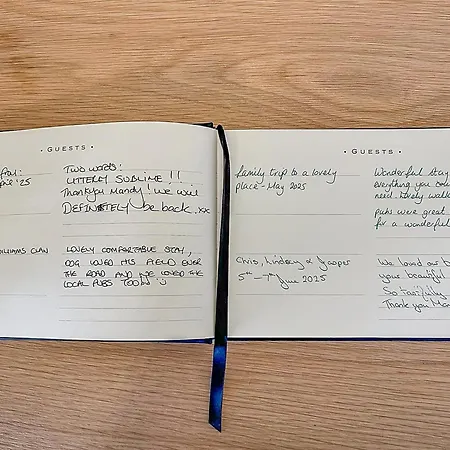 • GUESTS •
'25
TWO WORDS:
UTTERLY SUBLIME !!
Thankyou Mandy! We will
DEFINITELY be back. xx
WILLIAMS CLAN
LOVELY COMFORTABLE STAY,
DOG LOVED HIS FIELD OVER
THE ROAD AND WE LOVED THE
LOCAL PUBS TOO
• GUESTS •
Family trip to a lovely
place - May 2025
Wonderful stay
everything you
need. Lovely walk
pubs were great
for a wonderful
Chris, Lindsey & Jasper
5th - 7th June 2025
We loved our
your beautiful
So tastefully
Thank you